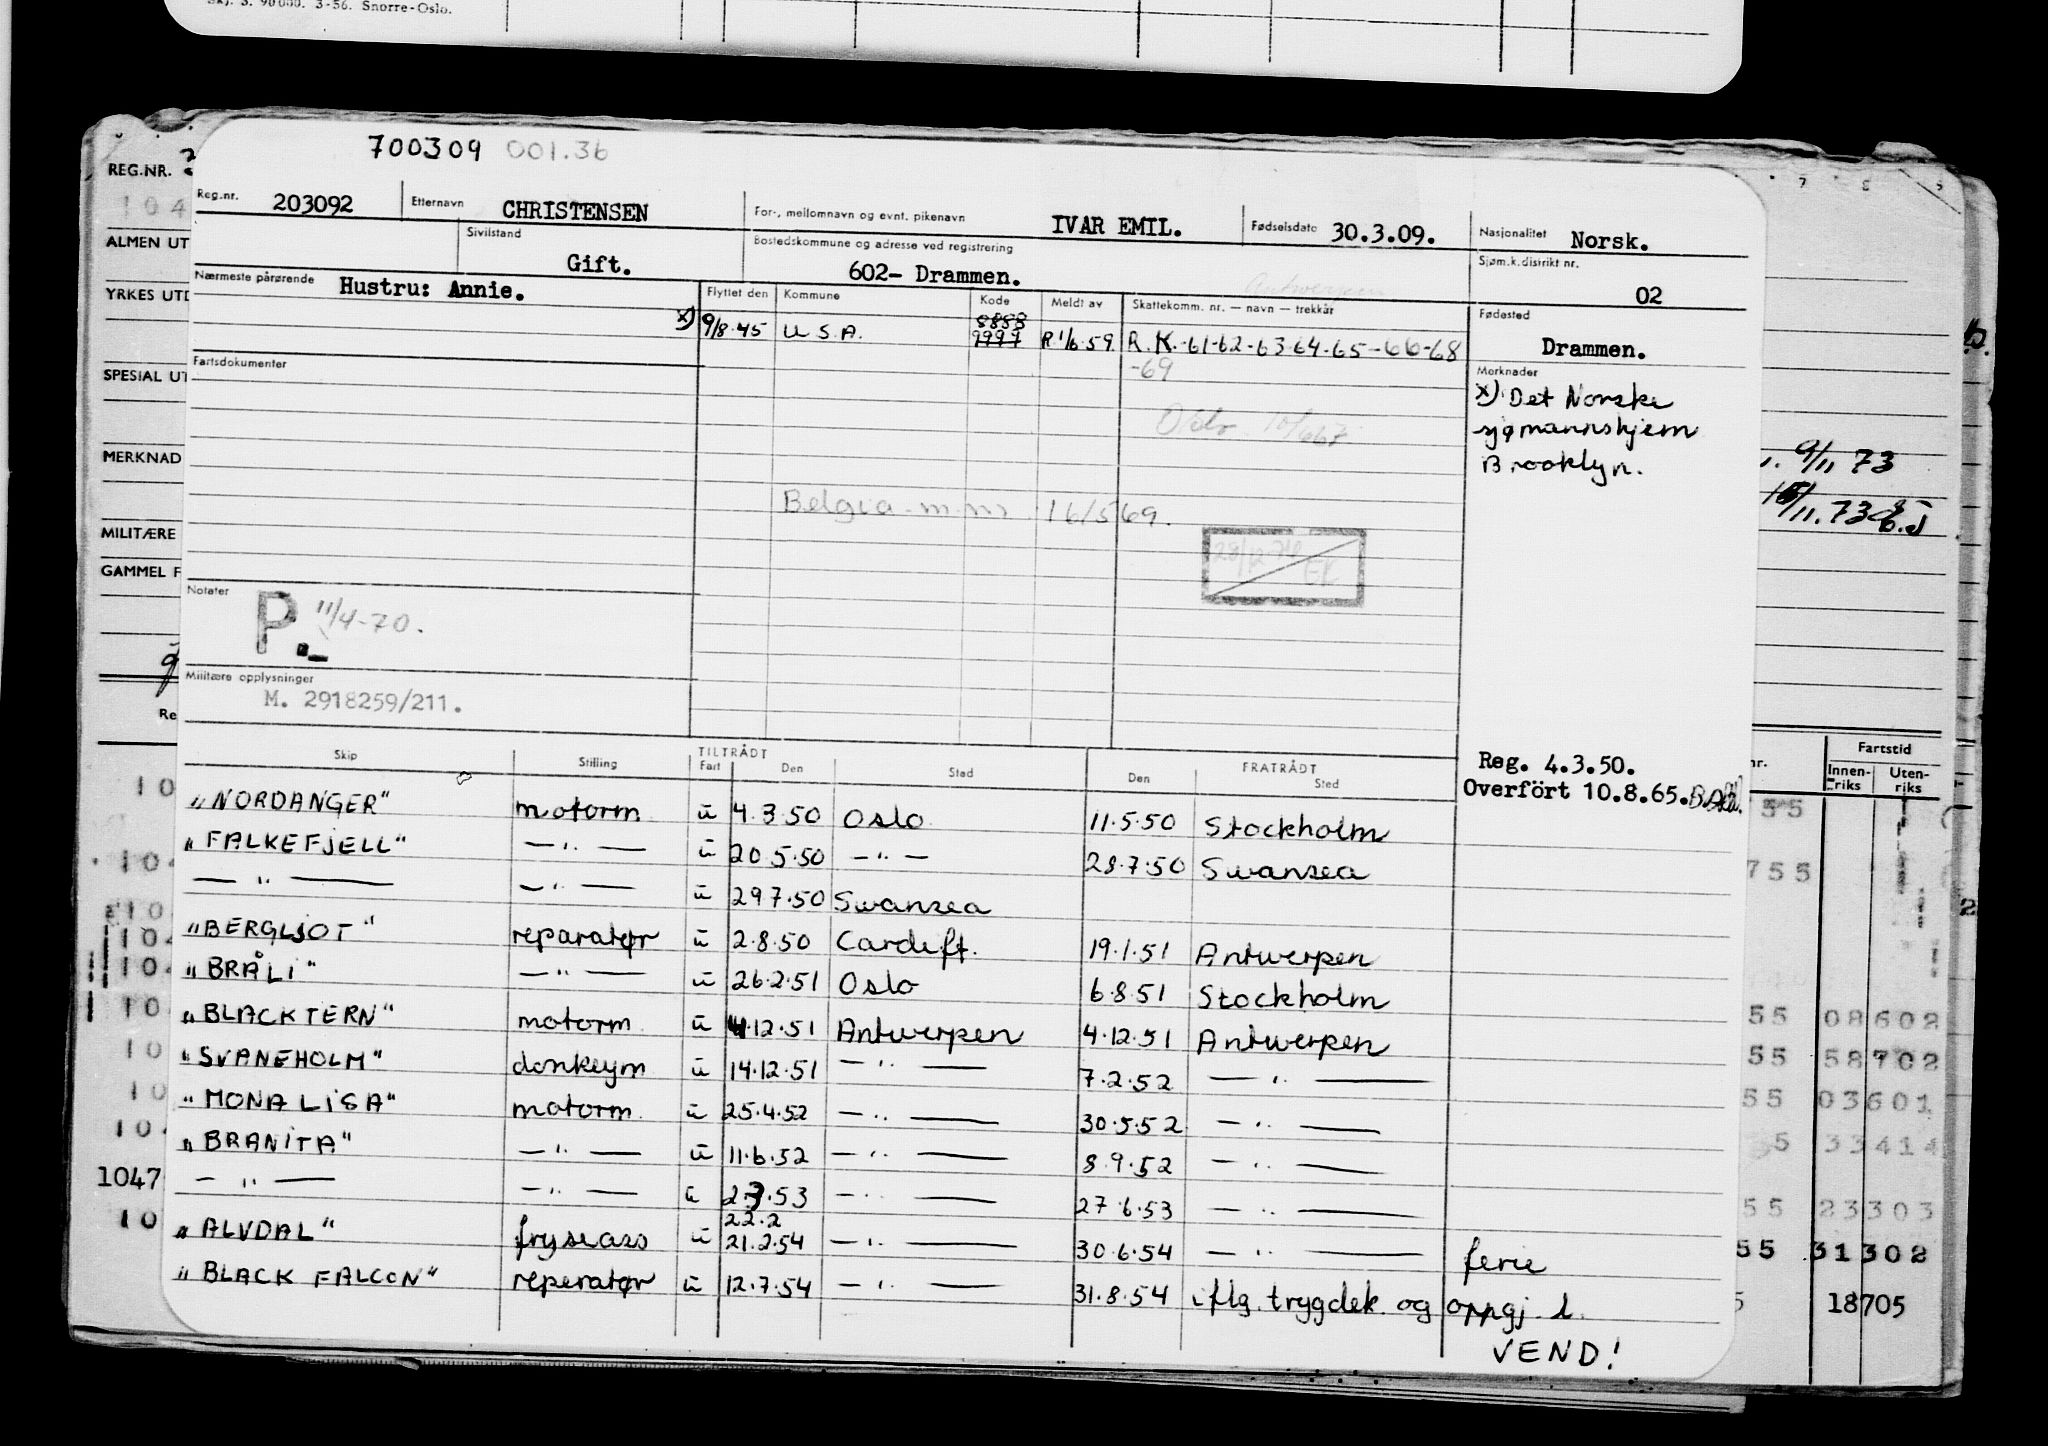 Skj. 3. 90000. 3-56. Snorre-Oslo.
700309 001.36
REG.NR.
Reg.nr. 203092 Etternavn CHRISTENSEN For-, mellomnavn og evnt. pikenavn IVAR EMIL. Fødselsdato 30.3.09. Nasjonalitet Norsk.
104
ALMEN UT
Sivilstand Gift. Bostedskommune og adresse ved registrering 602- Drammen. Sjøm.k.distrikt nr. 02
Nærmeste pårørende Hustru: Annie. Flyttet den Kommune Kode Meldt av Skattekomm. nr. — navn — trekkår Antwerpen Fødested Drammen.
YRKES UTD
x) 9/8.45 U S.A. 8888 9999 R 1/6.59 R.K.-61-62-63-64-65-66-68
-69
Fartsdokumenter
SPESIAL UT
Merknader
x) Det Norske
sjømannshjem
Brooklyn.
Oslo
MERKNAD
9/11 73
Belgia m.m. 16/5 69.
/11.73
MILITÆRE
28/12 EK
GAMMEL F
Notater
P. 11/4-70.
Militære opplysninger
M. 2918259/211.
Re
Skip Stilling TILTRÅDT Fart Den Sted FRATRÅDT Den Sted
Reg. 4.3.50.
Overfört 10.8.65.
nr. Fartstid
Innen-riks Uten-riks
"NORDANGER" motorm. u 4.3.50 Oslo 11.5.50 Stockholm
"FALKEFJELL" —"— u 20.5.50 —"— 28.7.50 Swansea
—"— —"— u 29.7.50 Swansea
"BERGLJOT" reparatør u 2.8.50 Cardiff. 19.1.51 Antwerpen
"BRÅLI" —"— u 26.2.51 Oslo 6.8.51 Stockholm
"BLACK TERN" motorm. u 4.12.51 Antwerpen 4.12.51 Antwerpen
55 08602
"SVANEHOLM" donkeym u 14.12.51 —"— 7.2.52 —"—
55 58702
"MONA LISA" motorm. u 25.4.52 —"— 30.5.52 —"—
55 03601
"BRANITA" —"— u 11.6.52 —"— 8.9.52 —"—
5 33414
1047
—"— —"— u 2.3.53 —"— 27.6.53 —"—
55 23303
22.2
"ALVDAL" fryseass u 21.2.54 —"— 30.6.54 —"— ferie
55 31302
"BLACK FALCON" reperatør u 12.7.54 —"— 31.8.54 iflg. trygdek. og oppgj. l.
5 18705
VEND!